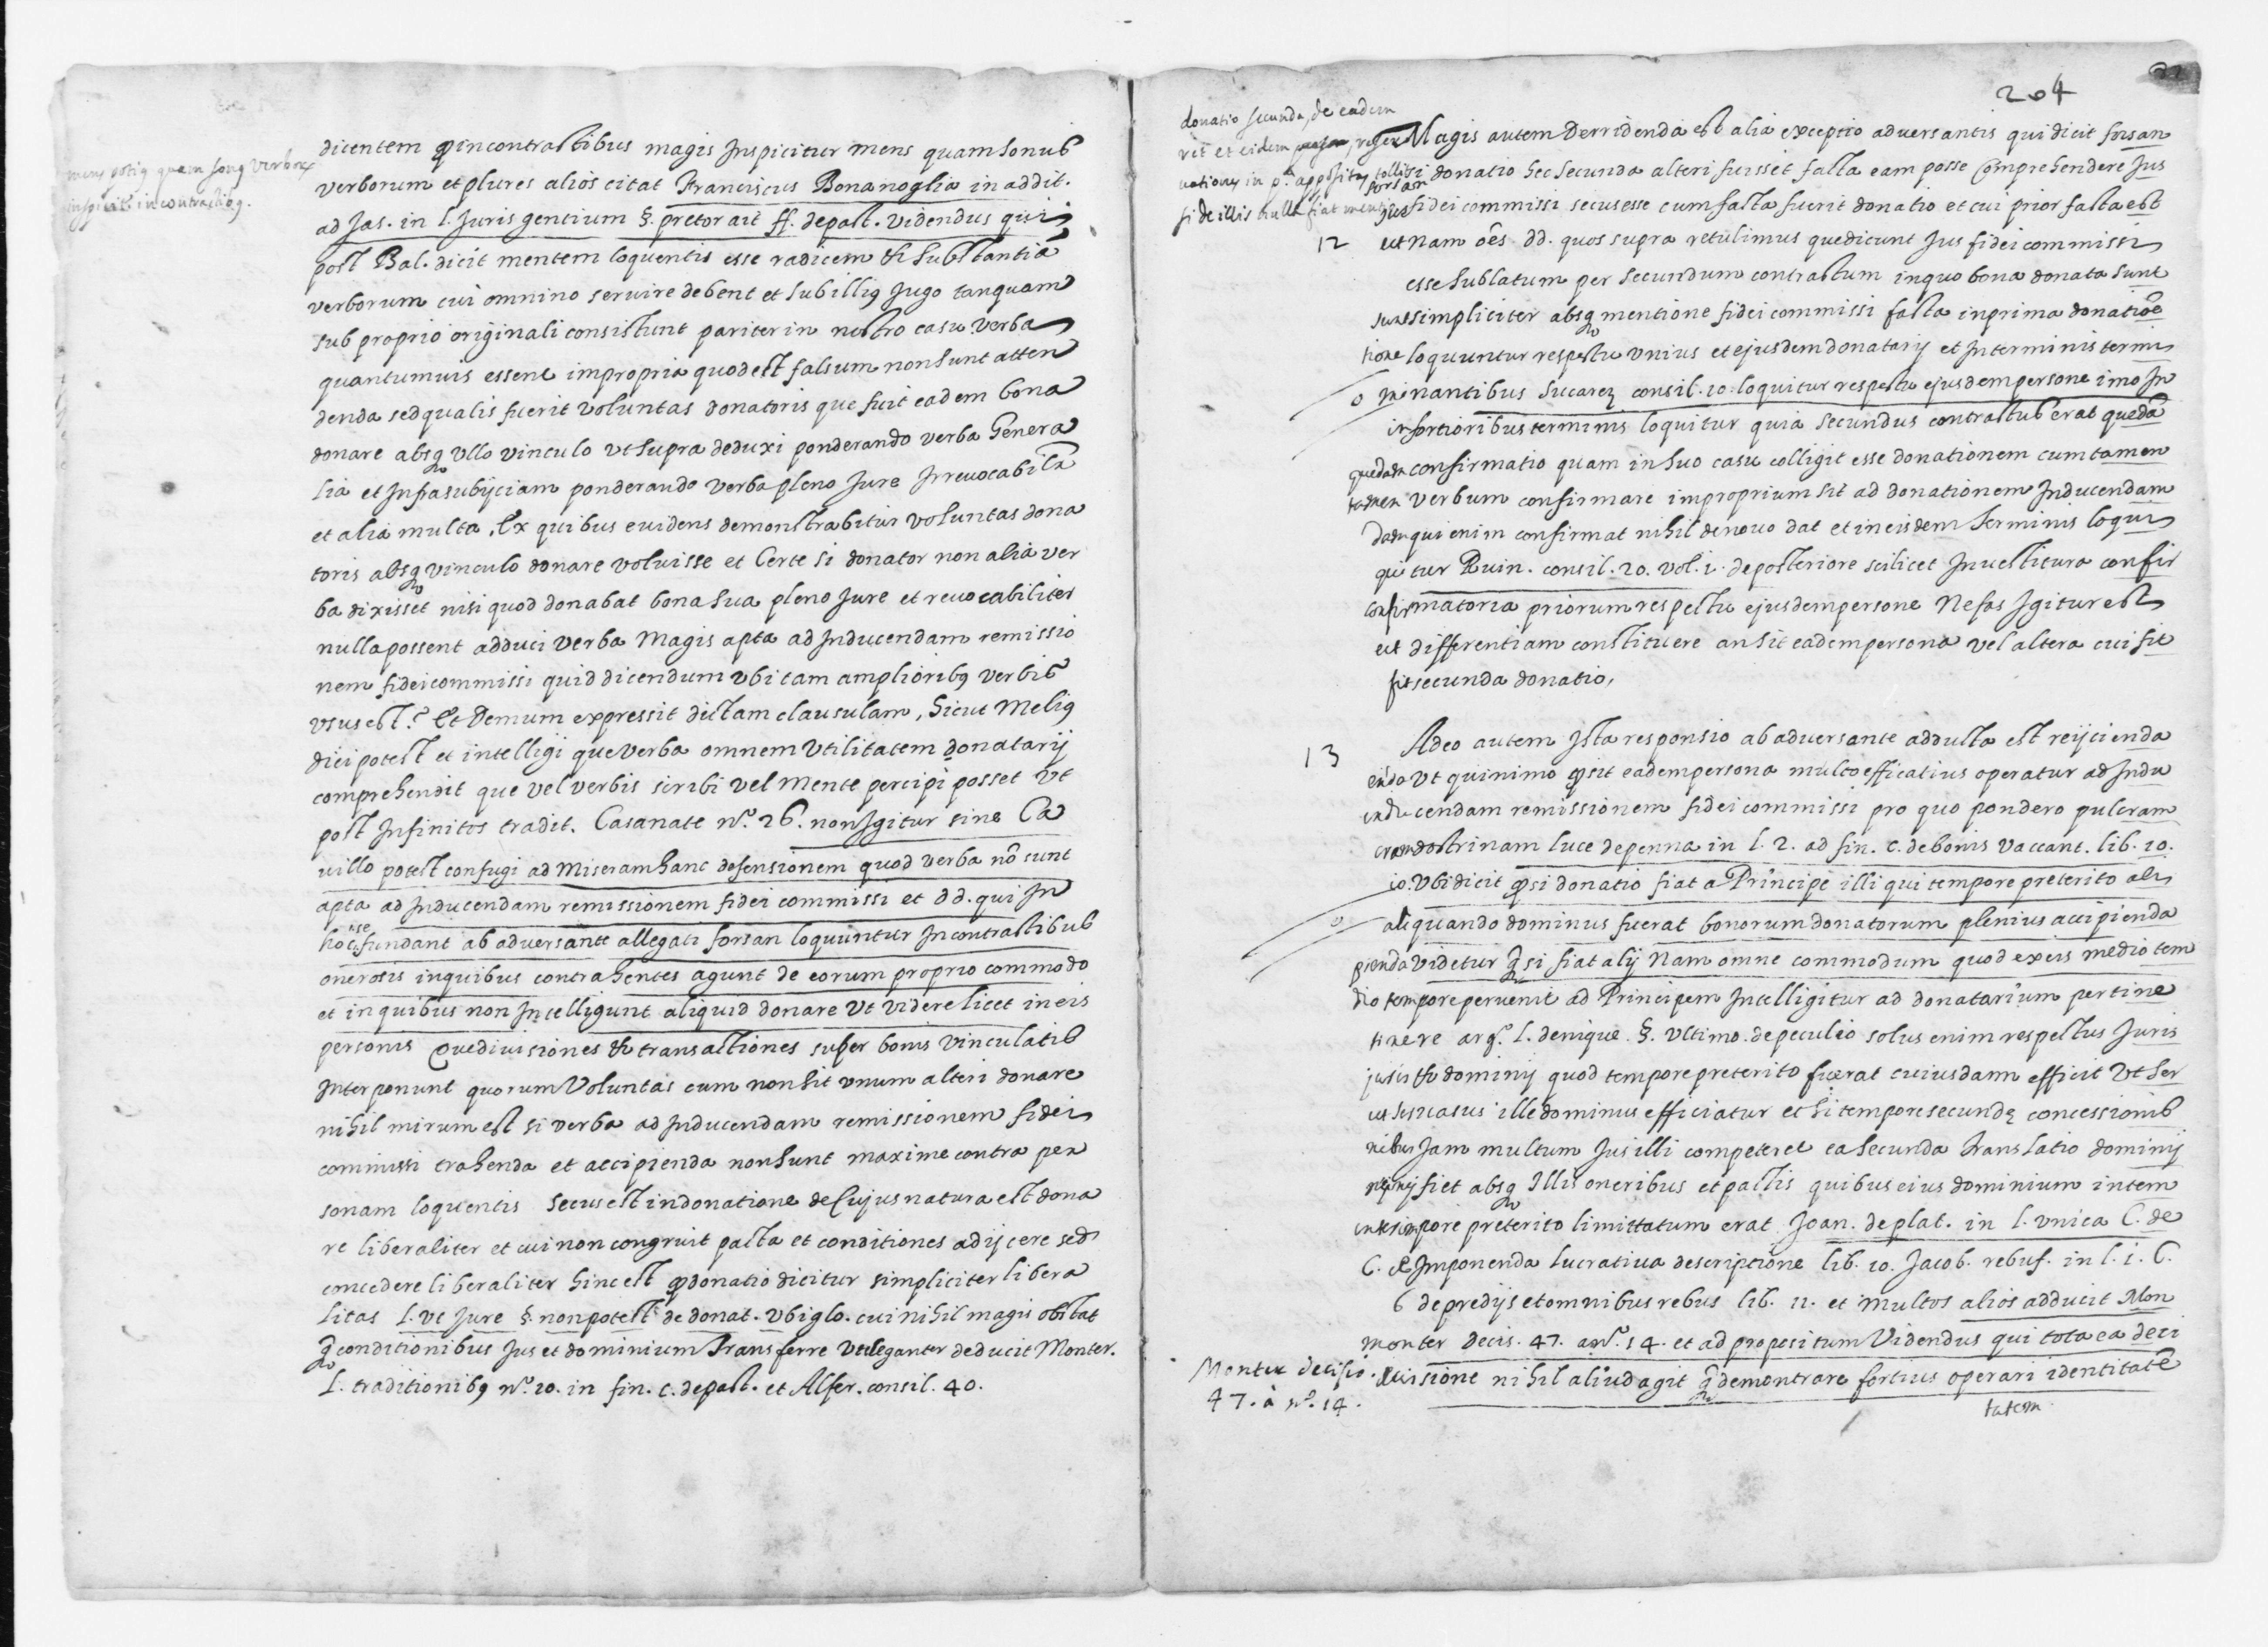 mens potiq quam sonq verborx
inspicit in contractibq.
dicentem q incontractibus magis Inspicitur mens quam sonus
verborum et plures alios citat Franciscus Bonanoglia in addit.
ad Jas. in l. Juris gentium §. pretor ait ff. depact. videndus qui
post Bal. dicit mentem loquentis esse radicem & substantiā
verborum cui omnino servire debent et sub illiq Jugo tanquam
sub proprio originali consistunt pariter in nostro casu verba
quantumuis essent impropria quod est falsum non sunt atten
denda sed qualis fuerit voluntas donatoris que fuit eadem bona
donare absq vllo vinculo vt supra deduxi ponderando verba Genera
lia et Infra subijciam ponderando verba pleno Jure Irreuocabilr
et alia multa. Ex quibus euidens demonstrabitur voluntas dona
toris absq vinculo donare voluisse et Certe si donator non alia ver
ba dixisset nisi quod donabat bona sua pleno Jure et reuocabiliter
nulla possent adduci verba Magis apta ad Inducendam remissio
nem fideicommissi quid dicendum vbi tam amplioribq verbis
vsus est? Et Demum expressit dictam clausulam, Sicut Meliq
dici potest et intelligi que verba omnem vtilitatem donatarij
comprehendit que vel verbis scribi vel Mente percipi posset vt
post Infinitos tradit. Casanate n°. 26. non Igitur sine Ca
uillo potest confugi ad Miseram hanc defensionem quod verba nō sunt
apta ad Inducendam remissionem fidei commissi et dd. qui In
hoc se fundant ab aduersante allegati forsan loquuntur Incontractibus
onerosis inquibus contrahentes agunt de eorum proprio commodo
et in quibus non Intelligunt aliquid donare vt videre licet in eis
personis que diuisiones & transactiones super bonis vinculatis
Interponunt quorum voluntas cum non sit vnum alteri donare
nihil mirum est si verba ad Inducendam remissionem fidei
commissi trahenda et accipienda non sunt maxime contra per
sonam loquentis secus est in donatione de Cujus natura est dona
re liberaliter et cui non congruit pacta et conditiones adijcere sed
concedere liberaliter hinc est q donatio dicitur simpliciter libera
litas l. vt Jure §. non potest de donat. vbi glo. cui nihil magis obstat
q conditionibus Jus et dominium Transferre vt eleganter deducit Monter.
l. traditionibq n°. 20. in fin. c. de pact. et Alfer. consil. 40.
204
donatio secunda, de eadem
si de illis nulla fiat mentio
Magis autem Derridenda est alia exceptio aduersantis qui dicit forsan
forsan
si donatio hec secunda alteri fuisset facta eam posse Comprehendere Jus
jus fidei commissi secus esse cum facta fuerit donatio et cui prior facta est
12 est Nam oēs dd. quos supra retulimus que dicunt Jus fidei commissi
esse sublatum per secundum contractum inquo bona donata sunt
sunt simpliciter absq mentione fidei commissi facta in prima donatiōe
tione loquuntur respectu vnius et ejusdem donatarij et In terminis termi
o minantibus Suarez consil. 10. loquitur respectu ejusdem persone imo In
in fortioribus terminis loquitur quia secundus contractus erat quedā
quedam confirmatio quam in suo casu colligit esse donationem cum tamen
tamen verbum confirmare improprium sit ad donationem Inducendam
dam qui enim confirmat nihil denouo dat et in eisdem terminis loqui
quitur Ruin. consil. 20. vol. 1. de posteriore scilicet Inuestitura confir
confirmatoria priorum respectu ejusdem persone Nefas Igitur est
est differentiam constituere an sit eadem persona vel altera cui fit
fit secunda donatio.
13 Adeo autem Ista responsio ab aduersante adducta est reijcienda
enda vt quinimo q sit eadem persona multo efficatius operatur ad Indu
inducendam remissionem fidei commissi pro quo pondero pulcram
cram doctrinam luce de penna in l. 2. ad fin. c. de bonis vaccant. lib. 10.
10. vbi dicit q si donatio fiat a Principe illi qui tempore preterito ali
o aliquando dominus fuerat bonorum donatorum plenius accipienda
pienda videtur q si fiat alij Nam omne commodum quod ex eis medio tem
dio tempore peruenit ad Principem Intelligitur ad donatarium pertine
tinere arg°. l. denique. §. vltimo. de peculio solus enim respectus Juris
juris & dominij quod tempore preterito fuerat cuiusdam efficit vt ser
ille dominus efficiatur et si tempore secundę concessionis
nibus Jam multum Jus illi competeret ea secunda translatio dominij
nij fiet absq Illis oneribus et pactis quibus eius dominium in tem
in tempore preterito limittatum erat Joan. de plat. in l. vnica C. de
C. de Imponenda lucratiua descriptione lib. 10. Jacob. rebuf. in l. 1. C.
C de predijs et omnibus rebus lib. 11. et multos alios adducit Mon
monter decis. 47. a n°. 14. et ad propositum videndus qui tota ea deci
decisione nihil aliud agit q demontrare fortius operari identitatē
tatem
Monter decisio.
47. à n°. 14.